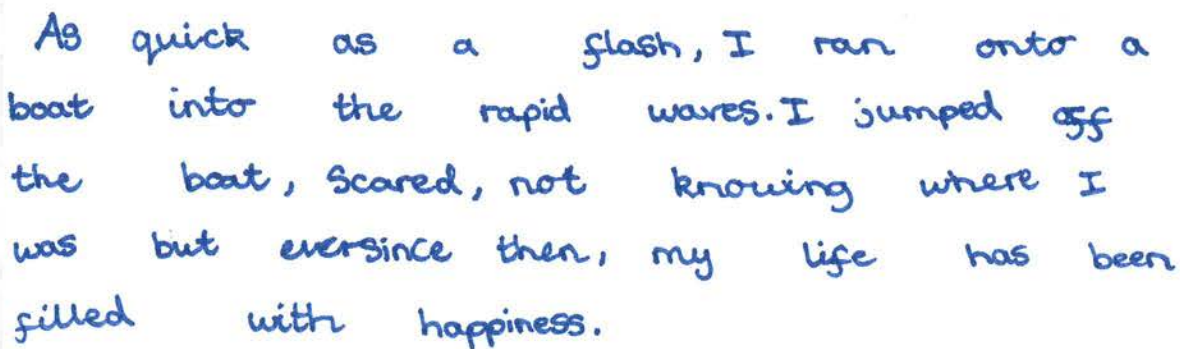 As quick as a flash, I ran onto a
boat into the rapid waves. I jumped off
the boat, scared, not knowing where I
was but eversince then, my life has been
filled with happiness.